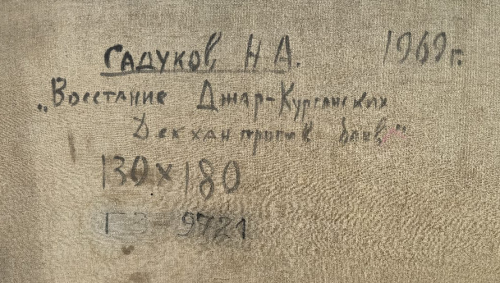 Гадуков Н А. 1969 г.
„Восстание Джар-Курганских
Декхан против баев"
130 х 180
ГЗ-9721